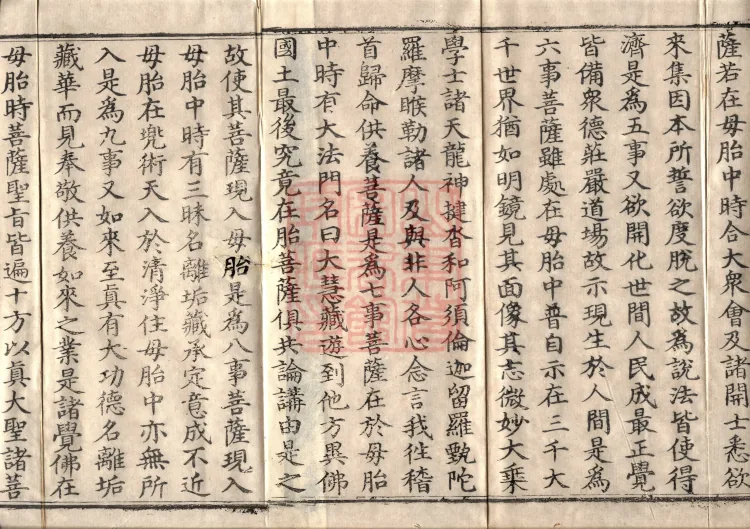 薩若在毋胎中時合大衆會及諸開士悉欲
來集因本所誓欲度脫之故爲說法皆使得
濟是爲五事又欲開化世間人民成最正覺
皆備衆德莊嚴道場故示現生於人間是爲
六事菩薩雖處在毋胎中普自示在三千大
千世界猶如明鏡見其面像其志微妙大乗
學士諸天龍神揵沓和阿須倫迦留羅甄陀
羅摩睺勒諸人及與非人各心念言我徃稽
首歸命供養菩薩是爲七事菩薩在於毋胎
中時有大法門名曰大慧藏遊到他方異佛
國土最後究竟在胎菩薩俱共論講由是之
故使其菩薩現入毋胎是爲八事菩薩現入
毋胎中時有三昧名離垢藏承定意成不近
毋胎在兜術天入於清淨住毋胎中亦無所
入是爲九事又如來至真有大功德名離垢
藏華而見奉敬供養如來之業是諸覺佛在
毋胎時菩薩聖旨皆遍十方以真大聖諸菩